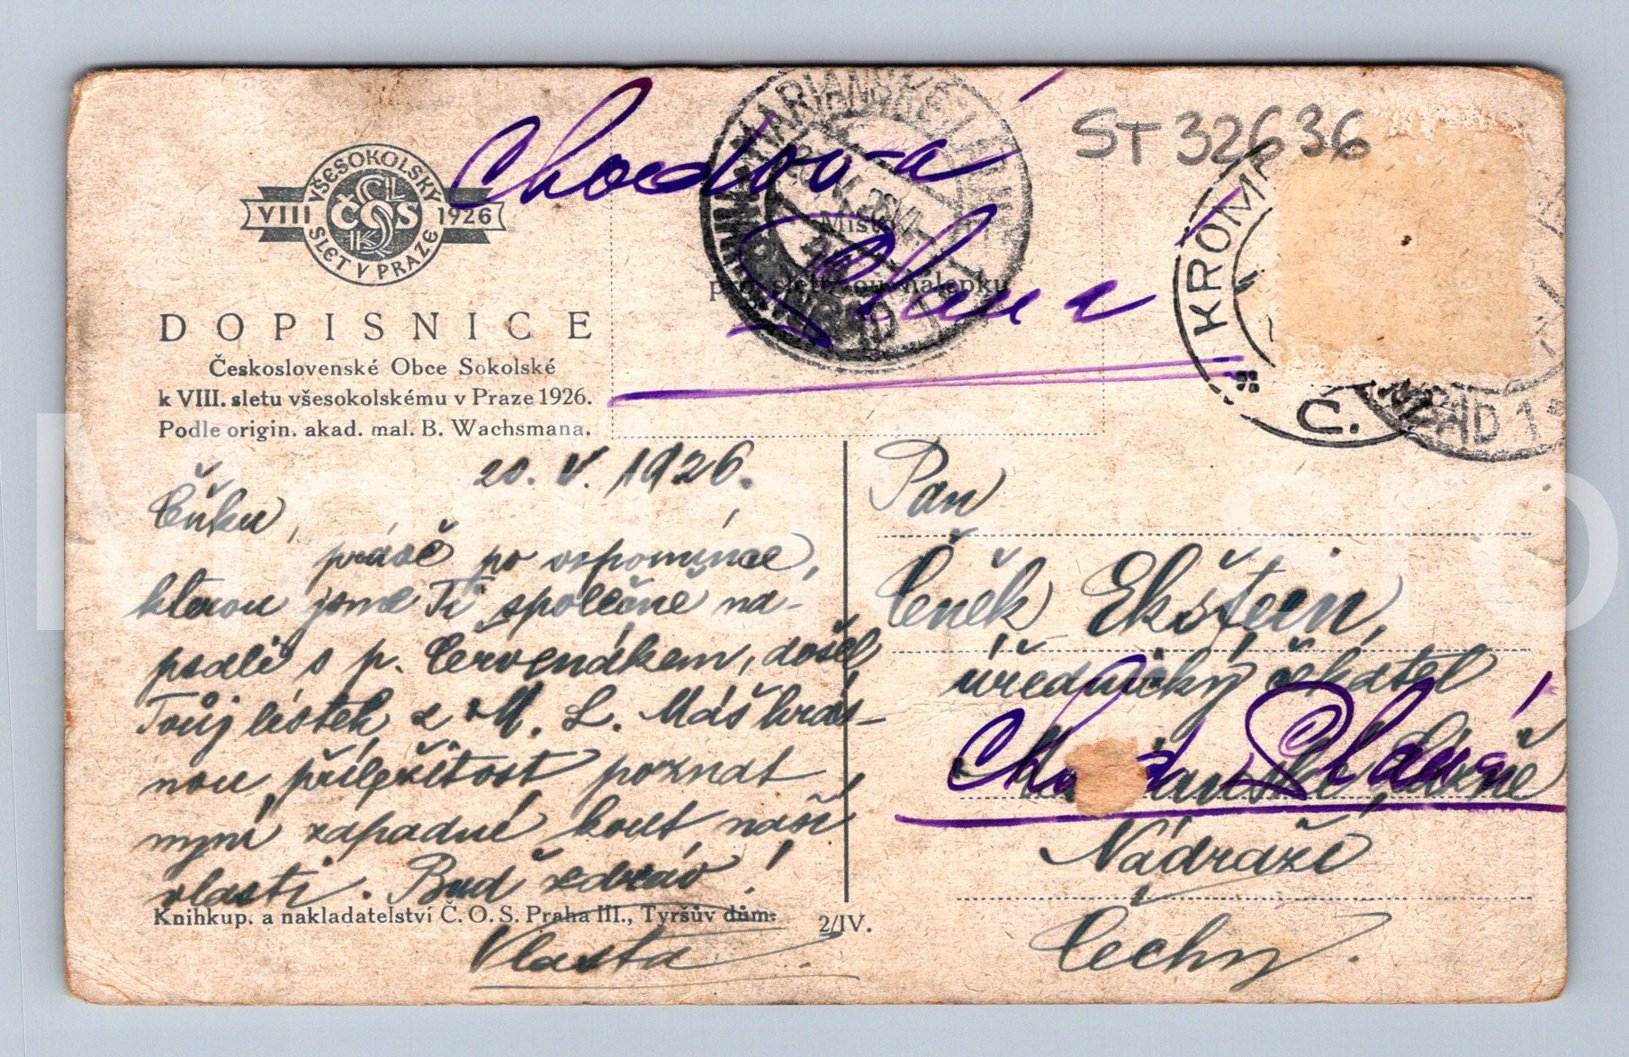 VŠESOKOLSKÝ
VIII ČOS 1926
SLET V PRAZE
DOPISNICE
Československé Obce Sokolské
k VIII. sletu všesokolskému v Praze 1926.
Podle origin. akad. mal. B. Wachsmana.
Chodová
Planá
MARIÁNSKÉ LÁZNĚ
Místo
pro sletovou nálepku
ST 32636
KROMĚ
Č.
20. V. 1926.
Čeňku,
právě po vzpomínce,
kterou jsme Ti společně na-
psali s p. Červenákem, došel
Tvůj lístek z M. L. Máš krás-
nou příležitost poznat
nyní západní kout naší
vlasti. Buď zdráv!
Vlasta
Knihkup. a nakladatelství Č. O. S. Praha III., Tyršův dům.
2/IV.
Pan
Čeněk Ekštein,
úřednický čekatel
Mariánské Lázně
Chod. Planá
Nádraží
Čechy.